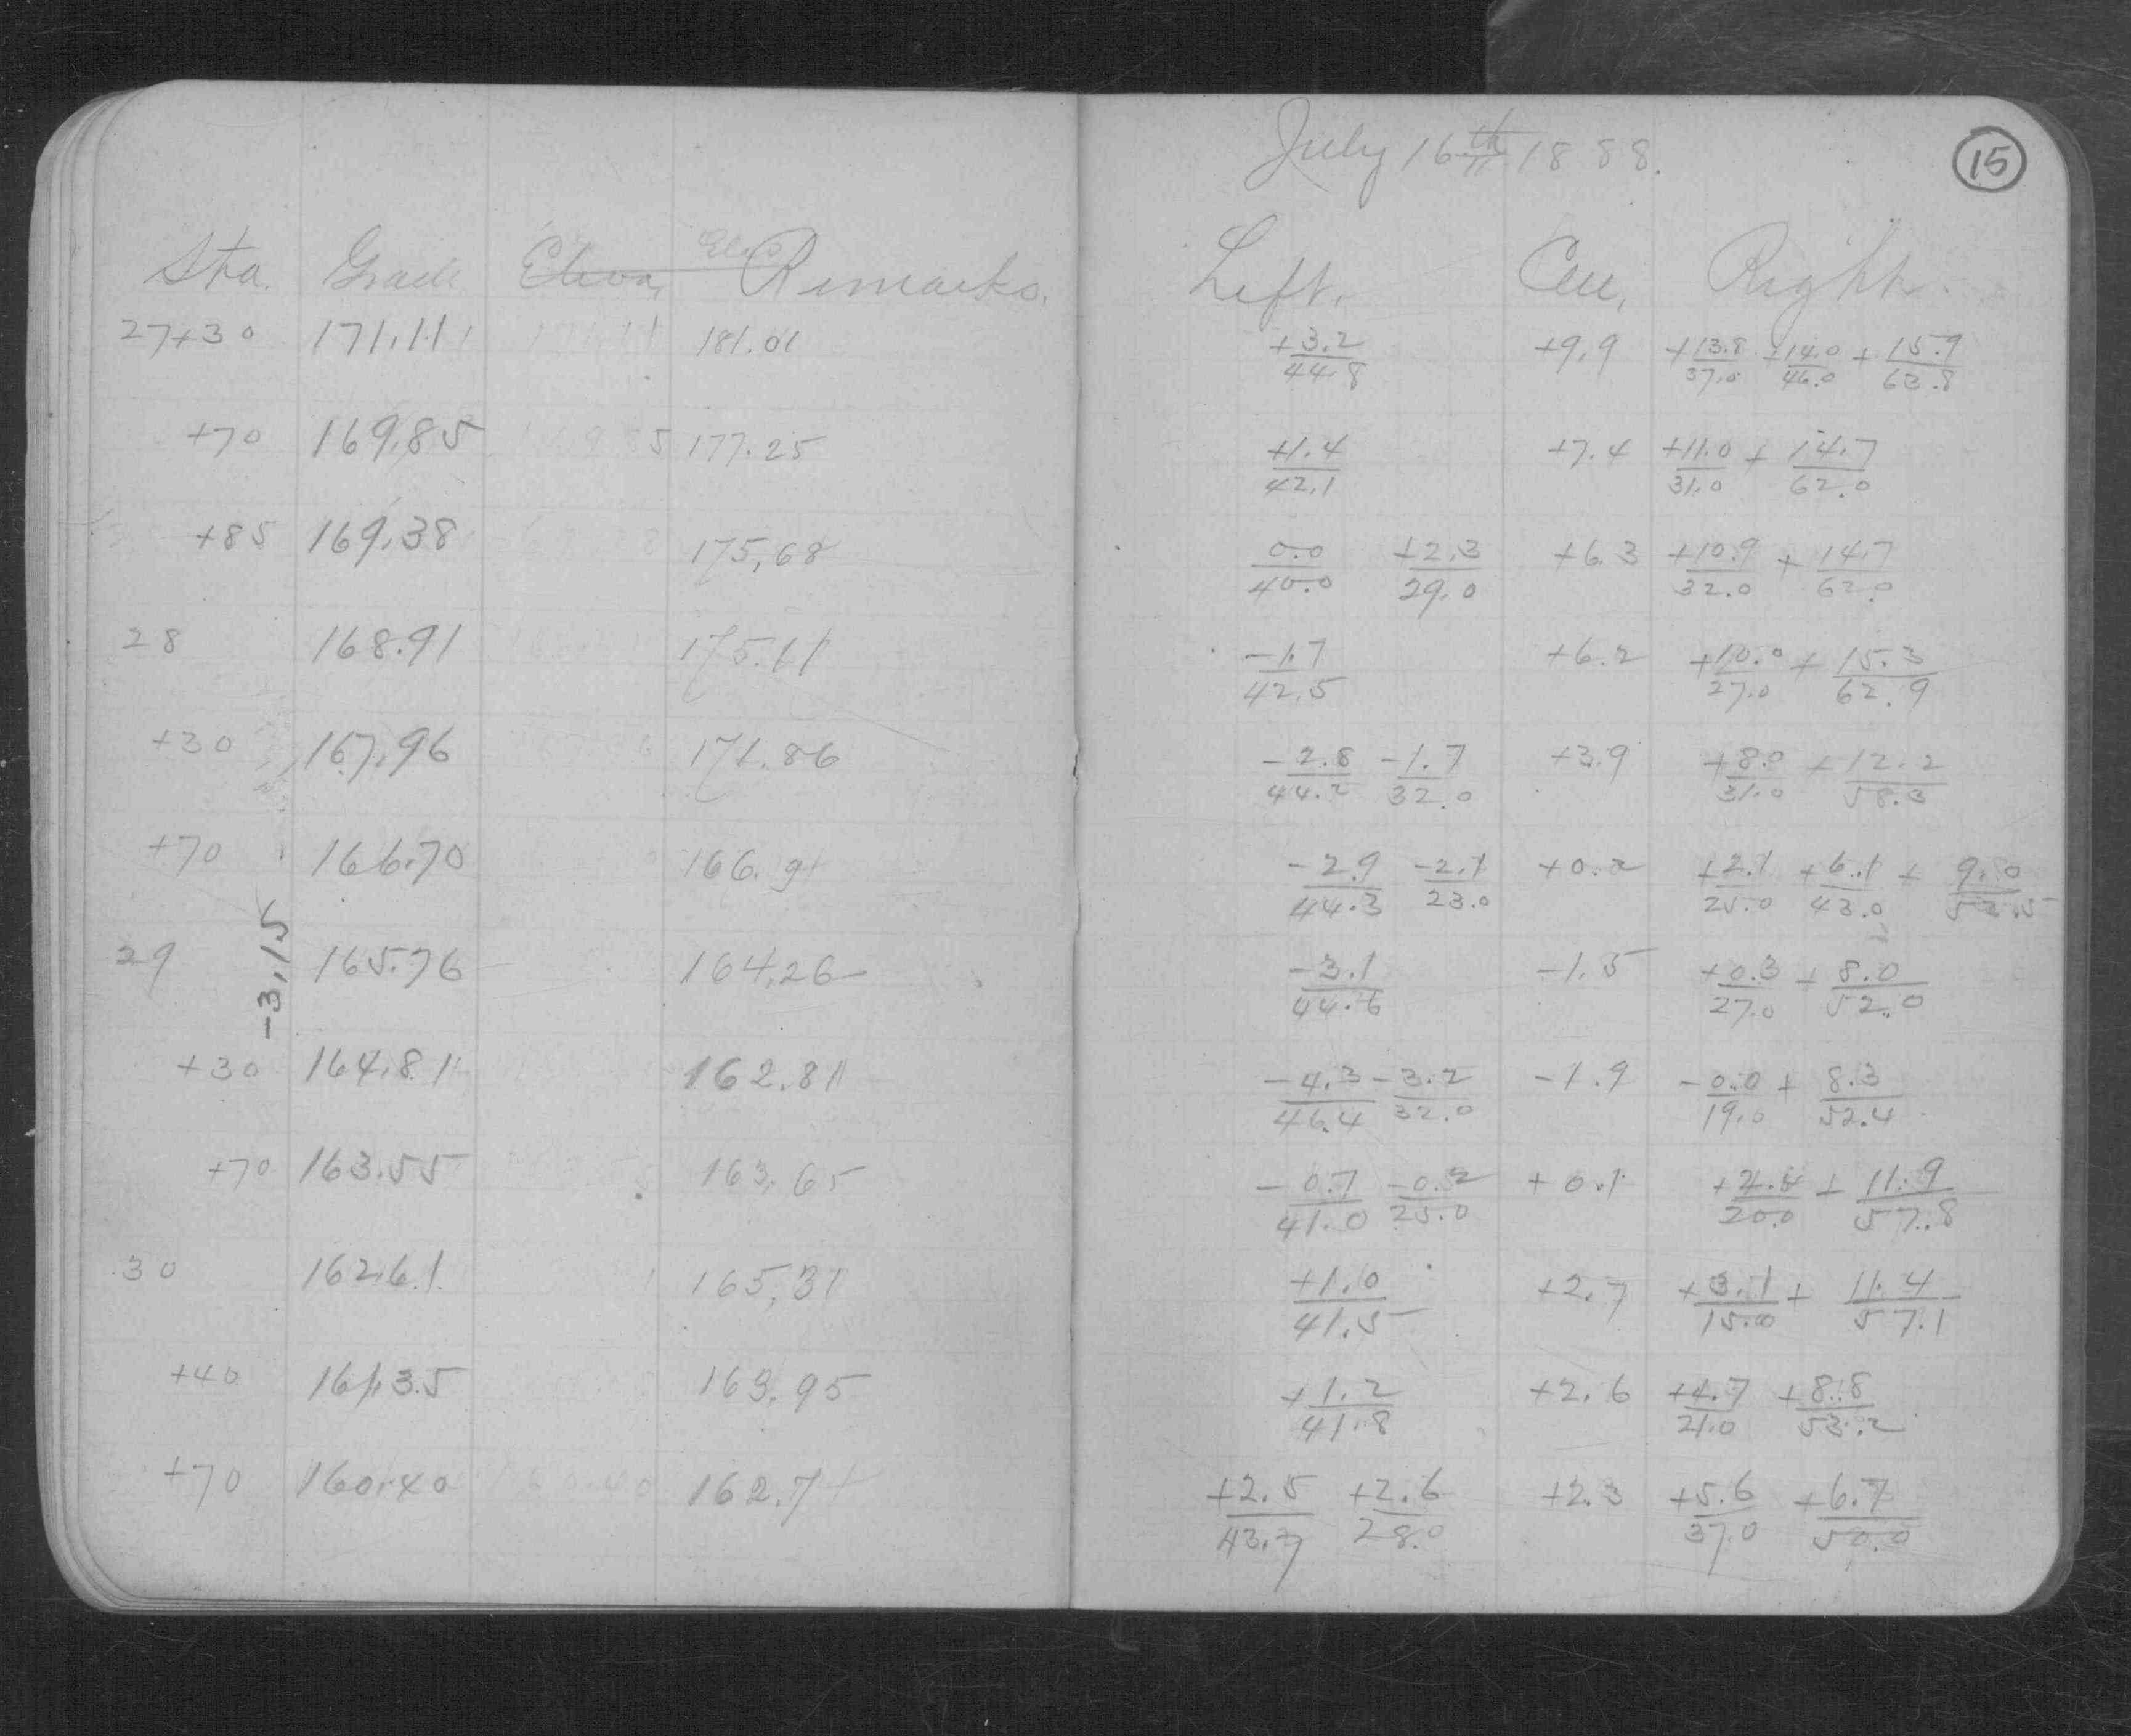 July 16th 1888.
15
Sta. Grade Eleva, Elev Remarks. Left. Cen, Right.
27+30 171.11 181.01 +3.2/44.8 +9.9 +13.8/37.0 +14.0/46.0 +15.9/63.8
+70 169.85 177.25 +1.4/42.1 +7.4 +11.0/31.0 +14.7/62.0
+85 169.38 175.68 0.0/40.0 +2.3/29.0 +6.3 +10.9/32.0 +14.7/62.0
28 168.91 175.11 -1.7/42.5 +6.2 +10.0/27.0 +15.3/62.9
+30 167.96 171.86 -2.8/44.2 -1.7/32.0 +3.9 +8.0/31.0 +12.2/58.3
+70 166.70 166.91 -2.9/44.3 -2.1/23.0 +0.2 +2.1/25.0 +6.1/43.0 +9.0/53.5
-3.15
29 165.76 164.26 -3.1/44.6 -1.5 +0.3/27.0 +8.0/52.0
+30 164.81 162.81 -4.3/46.4 -3.2/32.0 -1.9 -0.0/19.0 +8.3/52.4
+70 163.55 163.65 -0.7/41.0 /25.0 +0.1 /20.0 +11.9/57.8
30 162.61 165.31 +1.0/41.5 +2.7 +3.1/15.0 +11.4/57.1
+40 161.35 163.95 +1.2/41.8 +2.6 +4.7/21.0 +8.8/53.2
+70 160.40 160.40 162.71 +2.5/43.7 +2.6/28.0 +2.3 +5.6/37.0 +6.7/50.0